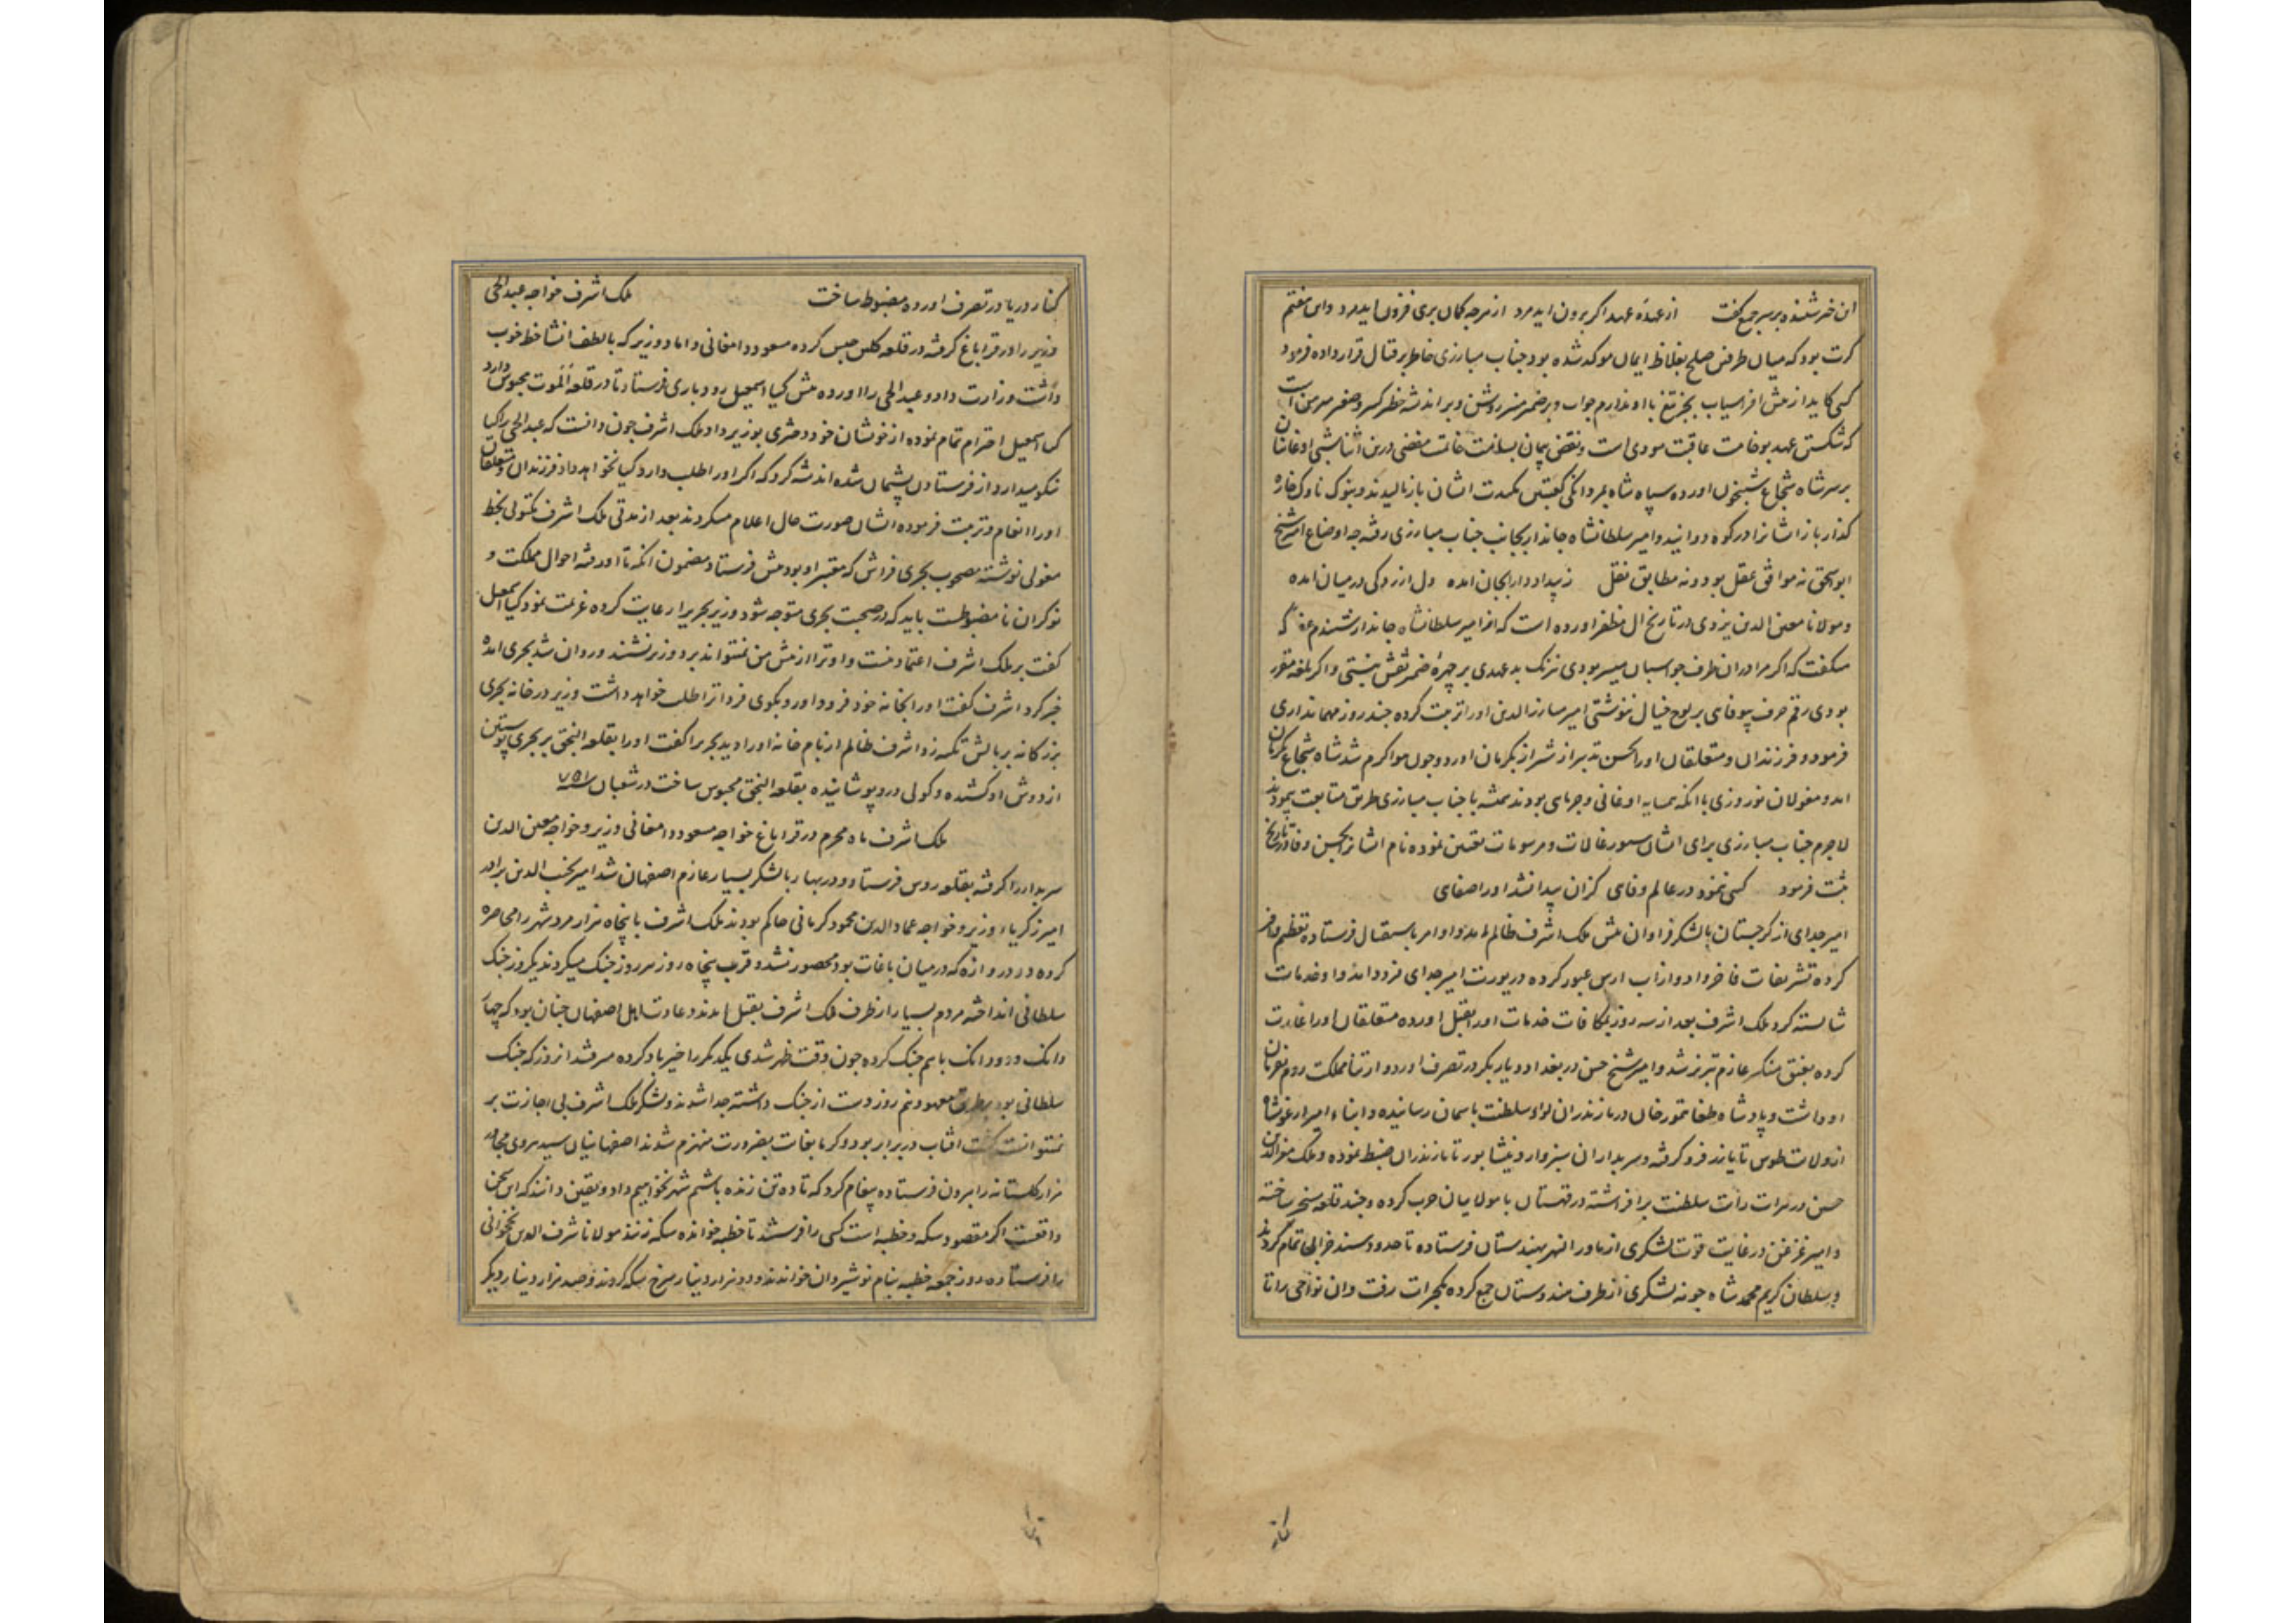 این خبر شنیده بر سر جمع گفت از عهدهٔ عهد اگر برون اید مرد از هرچه کمان بری فزون اید مرد و این هفتم
کرت بود که میان طرفین صلح بغلاظ ایمان موکد شده بود جناب مبارزی خاطر بر قتال قرار داده فرمود
کسی کاید از پیش افراسیاب بجز تیغ با او ندارم جواب و بر ضمیر منیر روشن و بر اندیشه خطر
که شکستن عهد بوخامت عاقبت مودی است و نقض پیمان بسامت خاتمت مفضی درین اثنا شبی اوغانیان
بر سر شاه شجاع شبیخون اورده سپاه شاه بمردانکی ایشان باز مالیدند و بنوک ناوک خاره
کذار باز ایشانرا در کوه دوانید و امیر سلطانشاه جاندار بجانب جناب مبارزی رفته چه اوضاع امیر شیخ
ابو سحق نه موافق عقل بود و نه مطابق نقل ز بیداد و از بجان امده دل ارزدکی در میان امده
و مولانا معین الدین یزدی در تاریخ ال مظفر اورده است که از امیر سلطانشاه جاندار شنیدم که
میکفت که اکر مرا در ان طرف جو اسبان میسر بودی نزنک بدعهدی بر چهرهٔ ضمیر نقش نبستی و اکر بلغه مقرر
بودی رقم حرف بیوفایی بر لوح خیال ننوشتی امیر مبارز الدین اورا تربیت کرده چند روز مهمانداری
فرمود و فرزندان و متعلقان اورا بحسن تدبیر از شیراز بکرمان اورد و چون مواکرم شد شاه شجاع بکرمان
امد و مغولان نوروزی با انکه همسایه اوغانی و جرمایی بودند همیشه با جناب مبارزی طریق متابعت پیمودند
لاجرم جناب مبارزی برای ایشان سیورغالات و مرسومات تعیین نموده نام ایشانرا بحسن وفا در تاریخ
ثبت فرمود کسی ننمود در عالم وفای کزان پیدا نشد اورا صفای
امیر جدای از کرجستان با لشکر فراوان پیش ملک اشرف ظالم امد و او امرا باستقبال فرستاده تعظیم وافر
کرده تشریفات فاخر داد و از اب ارس عبور کرده در یورت امیر جدای فرود امد و او خدمات
شایسته کرد ملک اشرف بعد از سه روز بمکافات خدمات اورا بقتل اورده متعلقان اورا غارت
کرده عازم تبریز شد و امیر شیخ حسن در بغداد و دیار بکر در تصرف اورد و ارتنا مملکت روم بفرمان
او داشت و پادشاه طغا تمور خان در مازندران لواء سلطنت باسمان رسانیده و ابناء امیر ارغونشاه
از ولایت طوس تا یازر فرو کرفته و سربداران سبزوار و نیشابور تا مازندران ضبط نموده و ملک معز الدین
حسین در هرات رایت سلطنت بر افراشته در قهستان با مولاییان حرب کرده و چند قلعه مسخر ساخته
و امیر غزغن در غایت قوت لشکری از ماورا النهر بهندستان فرستاده تا حدود سند خرابی تمام کردند
و سلطان کریم محمد شاه جونه لشکری از طرف هندوستان جمع کرده بکجرات رفت و ان نواحی را تا
کنار دریا در تصرف اورده مضبوط ساخت ملک اشرف خواجه عبد الحی
وزیر را در قراباغ کرفته در قلعه کلس حبس کرده مسعود دامغانی داماد وزیر که بالطف انشا خط خوب
داشت وزارت داد و عبد الحی را اورده پیش کیا اسمعیل رودباری فرستاد تا در قلعه الموت محبوس دارد
کیا اسمعیل احترام تمام نموده از خویشان خود دختری بوزیر داد ملک اشرف چون دانست که عبد الحی را کیا
نیکو میدارد از فرستادن پشیمان شده اندیشه کرد که اکر اورا طلب دارد کیا نخواهد داد فرزندان و متعلقان
اورا انعام و تربیت فرموده ایشان صورت حال اعلام میکردند بعد از مدتی ملک اشرف مکتوبی بخط
مغولی نوشته مصحوب بحری فراش که معتبر او بود پیش فرستاد مضمون انکه تا او رفته احوال مملکت و
نوکران نا مضبوطست باید که در صحبت بحری متوجه شود وزیر بحریرا رعایت کرده عزیمت نمود کیا اسمعیل
کفت بر ملک اشرف اعتماد نیست و او ترا از پیش من نمیتواند برد وزیر نشنید و روان شد بحری امده
خبر کرد اشرف کفت اورا بخانه خود فرود اور و بکوی فردا ترا طلب خواهد داشت وزیر در خانه بحری
بزرکانه بر بالش تکیه زد اشرف ظالم از بام خانه اورا دید بحریرا کفت اورا بقلعه النجق بر بحری پوستین
از دوش او کشیده و کولی درو پوشانیده بقلعه النجق محبوس ساخت در شعبان سنه ۷۵۱
ملک اشرف ماه محرم در قراباغ خواجه مسعود دامغانی وزیر و خواجه معین الدین
سربدار را کرفته بقلعه روین فرستاد و در بهار با لشکر بسیار عازم اصفهان شد امیر نجیب الدین برادر
امیر زکریاء وزیر و خواجه عماد الدین محمود کرمانی حاکم بودند ملک اشرف با پنجاه هزار مرد شهر را محاصره
کرده در دروازه که در میان باغات بود محصور نشد و قریب پنجاه روز هر روز جنک میکردند یکروز جنک
سلطانی انداخته مردم بسیار از طرف ملک اشرف بقتل امدند و عادت اهل اصفهان چنان بود که چهار
دانک و دو دانک باهم جنک کرده چون وقت ظهر شدی یکدیکر را خیر باد کرده میرفتند انروز که جنک
سلطانی بود بطریق معهود نیم روز دست از جنک داشته جدا شدند و لشکر ملک اشرف بی اجازت بر
نمیتوانست کشت افتاب در برابر بود و کرما بغایت بضرورت منهزم شدند اصفهانیان سید هروی مجاور
مزار کلستانه را بیرون فرستاده پیغام کرد که تا ده تن زنده باشیم شهر نخواهیم داد و یقین دانند که این سخن
واقعست اکر مقصود سکه و خطبه است کسی را فرستند تا خطبه خوانده سکه زنند مولانا شرف الدین نخجوانی
را فرستاده روز جمعه خطبه بنام نوشیروان خواندند و دو هزار دینار سرخ سکه کردند و صد هزار دینار دیکر